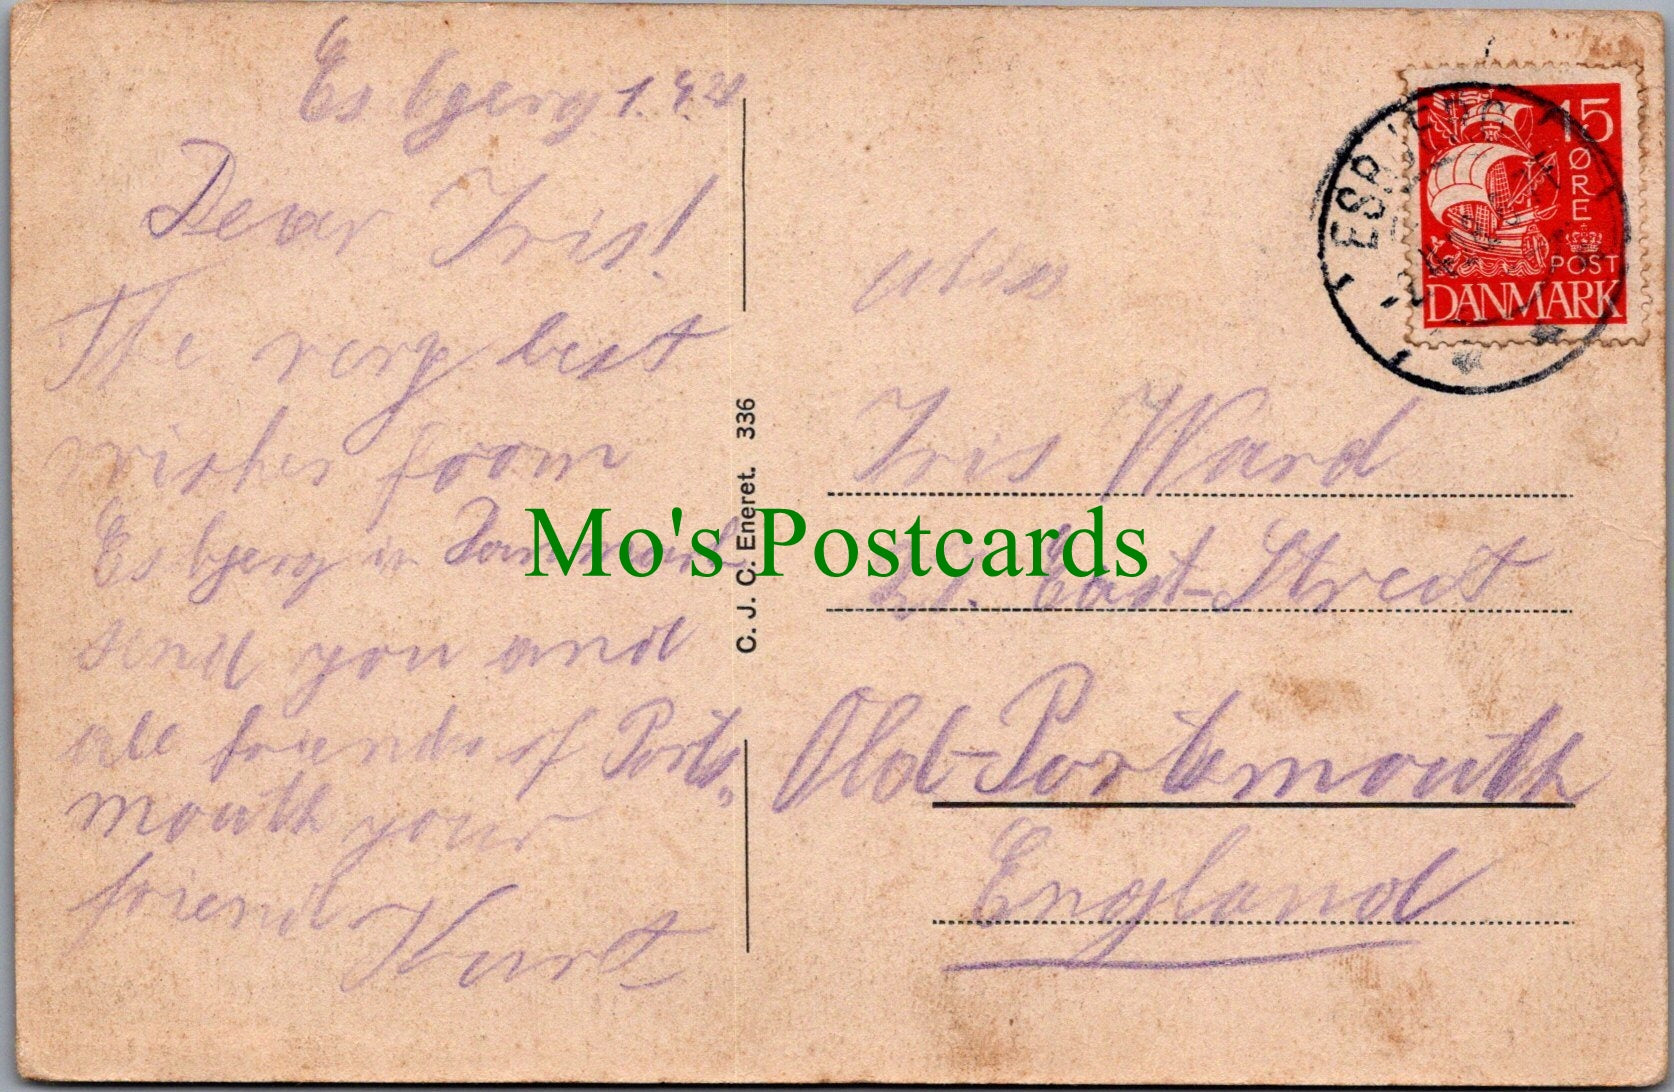 Esbjerg 1.
Dear Iris!
The very best
wishes from
Esbjerg in Danmark
send you and
all friends of Ports,,
mouth your
friend
Kurt
C. J. C. Eneret. 336
Miss
Iris Ward
21. East-Street
Old-Portsmouth
England
ESBJERG
15
ØRE
POST
DANMARK
Mo's Postcards